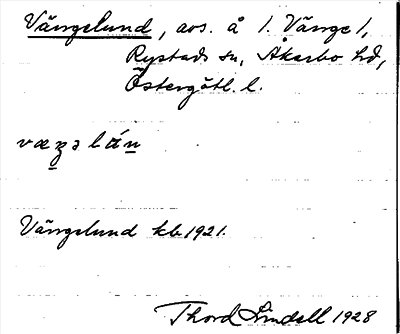 Vängelund, avs. å 1. Vänge 1,
Rystads sn, Åkerbo hd,
Östergötl. l.
Vängelund kb 1921.
Thord Lindell 1928